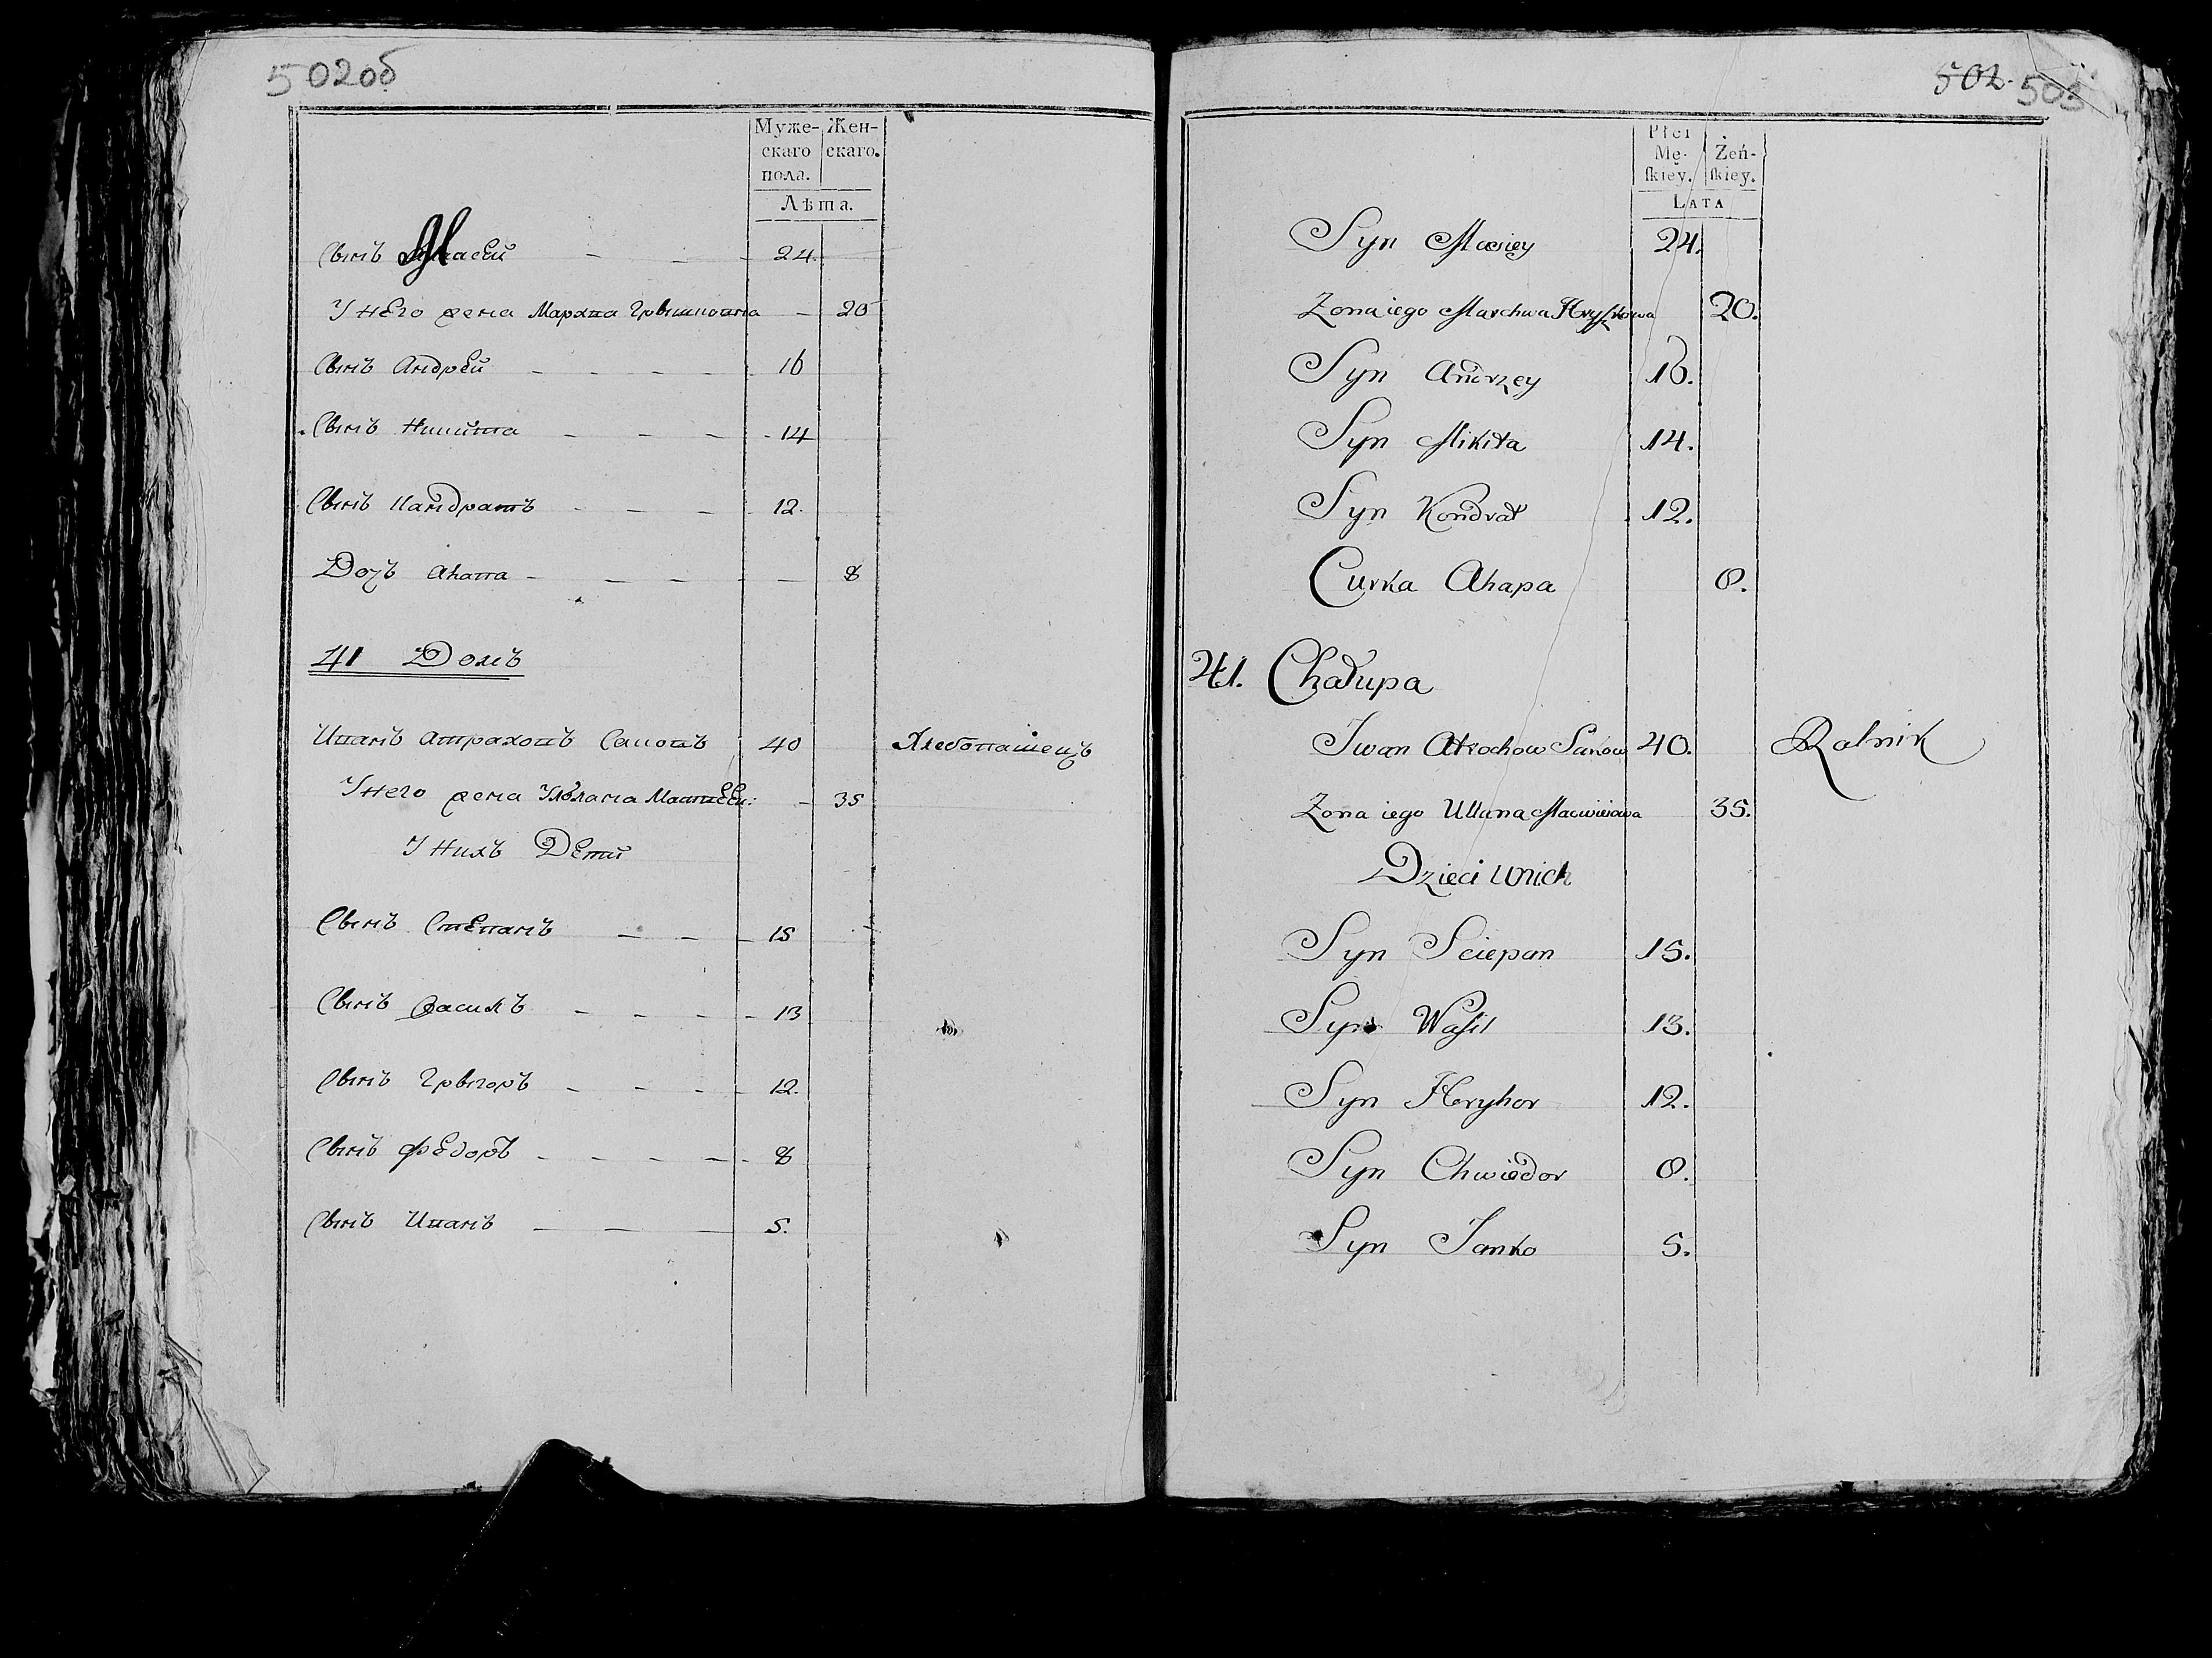 502об
Муже- Жен-
скаго скаго.
пола.
Лѣта.
Сынъ 24.
У Него жена Мархва Грышкова 20
Сынъ Андрей 16
Сынъ Никита 14
Сынъ Кандратъ 12.
Дочь Аhапа 8
41 Домъ
Иванъ Атраховъ Саковъ 40 Хлебопашецъ
У Него жена Улляна Матвее: 35
У Нихъ Дети
Сынъ Степанъ 15
Сынъ Василъ 13
Сынъ Грыгоръ 12.
Сынъ Федоръ 8
Сынъ Иванъ 5.
502. 503
Płci
Mę- Żeń-
ſkiey. ſkiey.
LATA
Syn Maciey 24.
Zona iego Marchwa Hryſzkowa 20.
Syn Andrzey 16.
Syn Mikita 14.
Syn Kondrat 12.
Curka Ahapa 8.
41. Chałupa
Iwan Atrochow Sakow 40. Rolnik
Zona iego Ullana Maciwiejowa 35.
Dzieci u nich
Syn Sciepan 15.
Syn Waſil 13.
Syn Hryhor 12.
Syn Chwiedor 8.
Syn Janko 5.